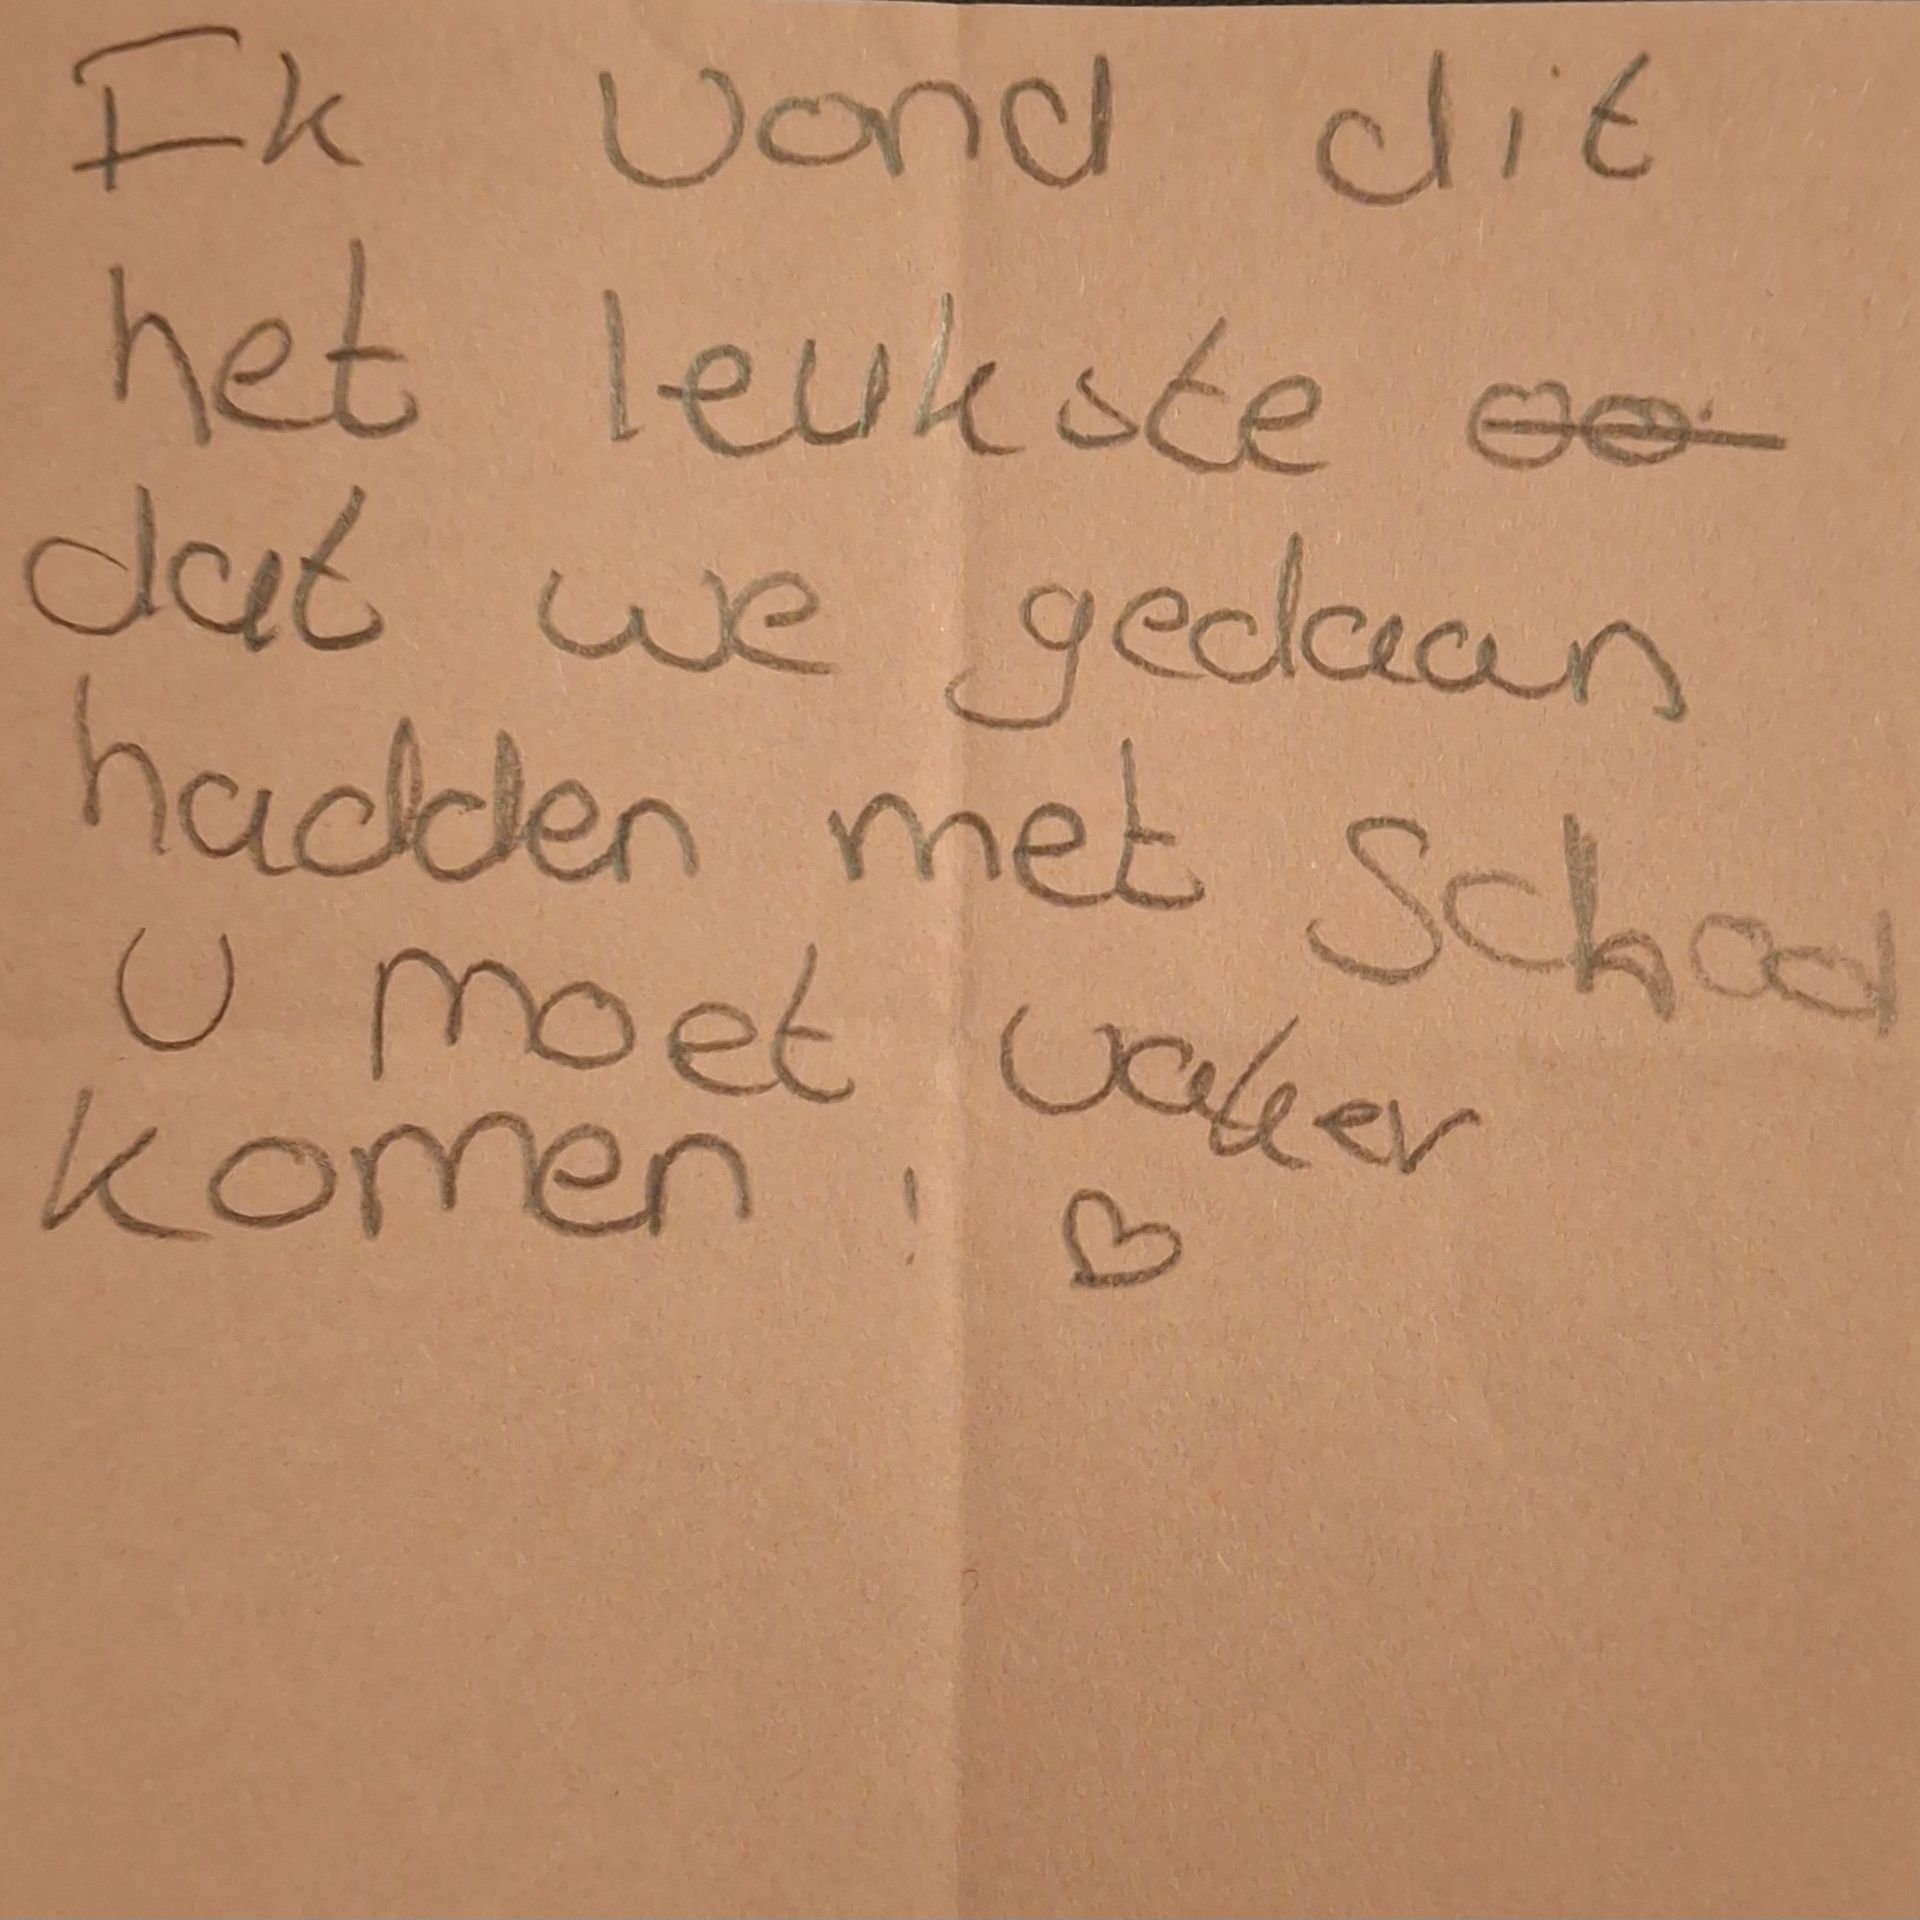 Ik vond dit
het leukste
dat we gedaan
hadden met School
U moet vaker
komen! ♡